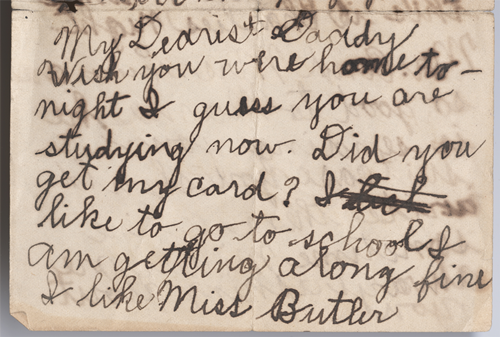 My Dearest Daddy
Wish you were home to-
night I guess you are
studying now. Did you
get my card? I
like to go to school I
am gettling along fine
I like Miss Butler